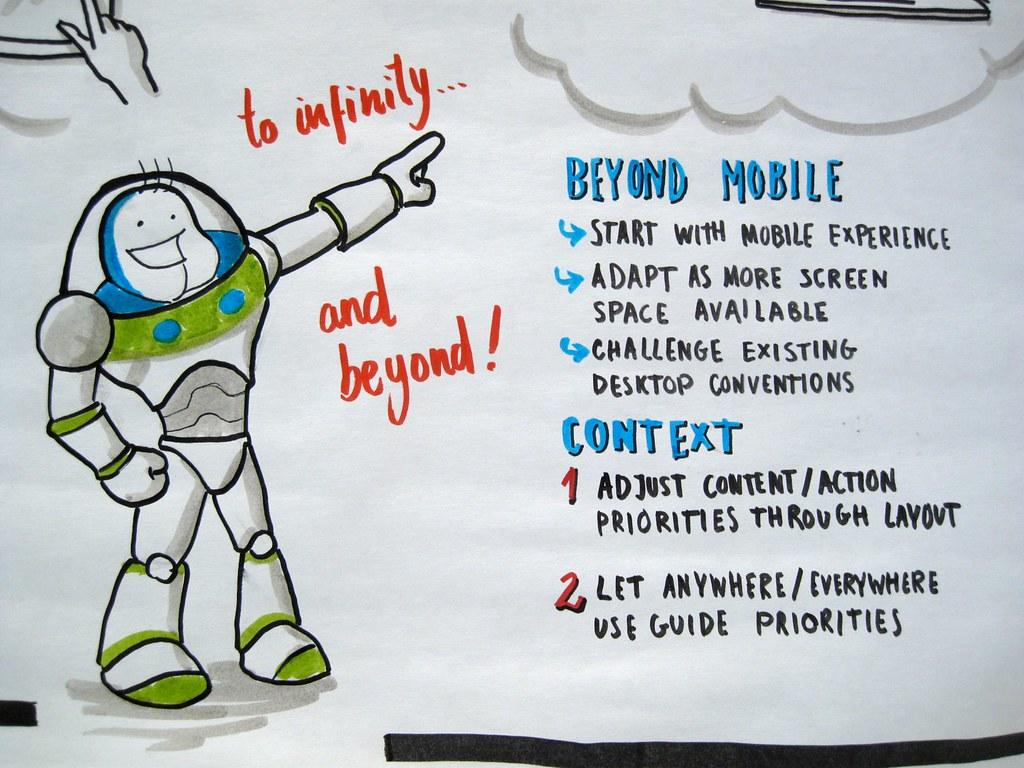 to infinity...
and
beyond!
BEYOND MOBILE
START WITH MOBILE EXPERIENCE
ADAPT AS MORE SCREEN
SPACE AVAILABLE
CHALLENGE EXISTING
DESKTOP CONVENTIONS
CONTEXT
1 ADJUST CONTENT/ACTION
PRIORITIES THROUGH LAYOUT
2 LET ANYWHERE/EVERYWHERE
USE GUIDE PRIORITIES